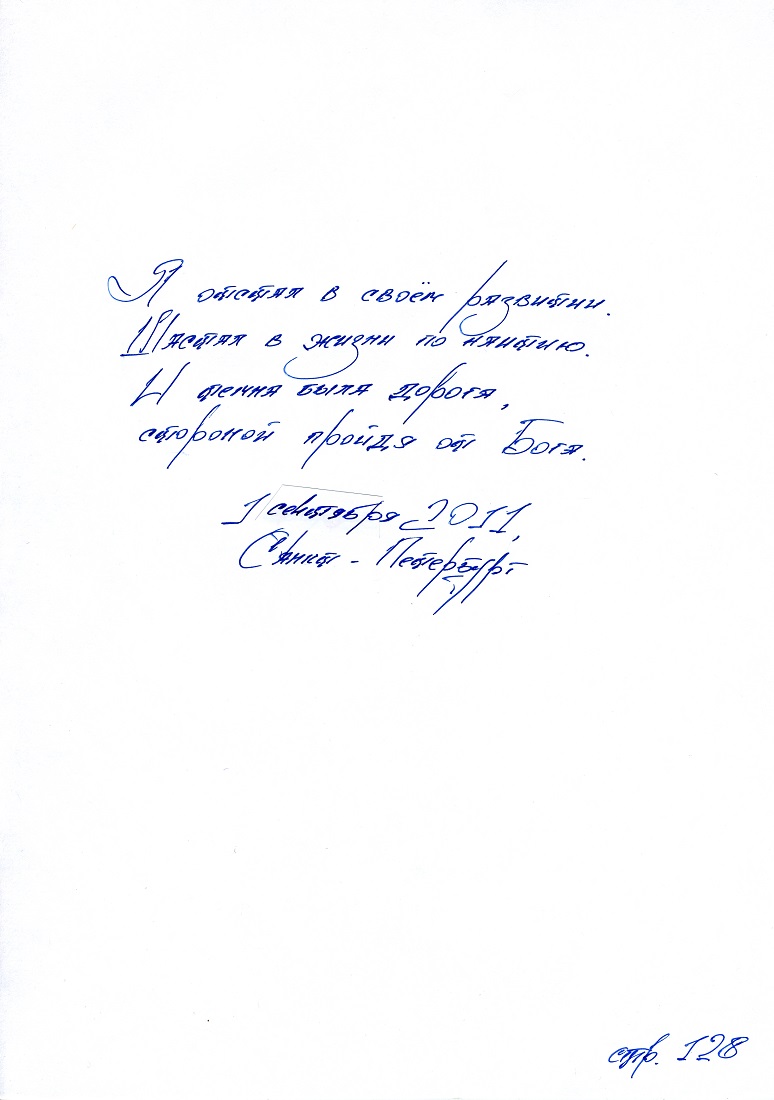 Я отстал в своём развитии.
Шастал в жизни по наитию.
И темна была дорога,
стороной пройдя от Бога.
1 сентября 2011,
Санкт-Петербург
стр. 128